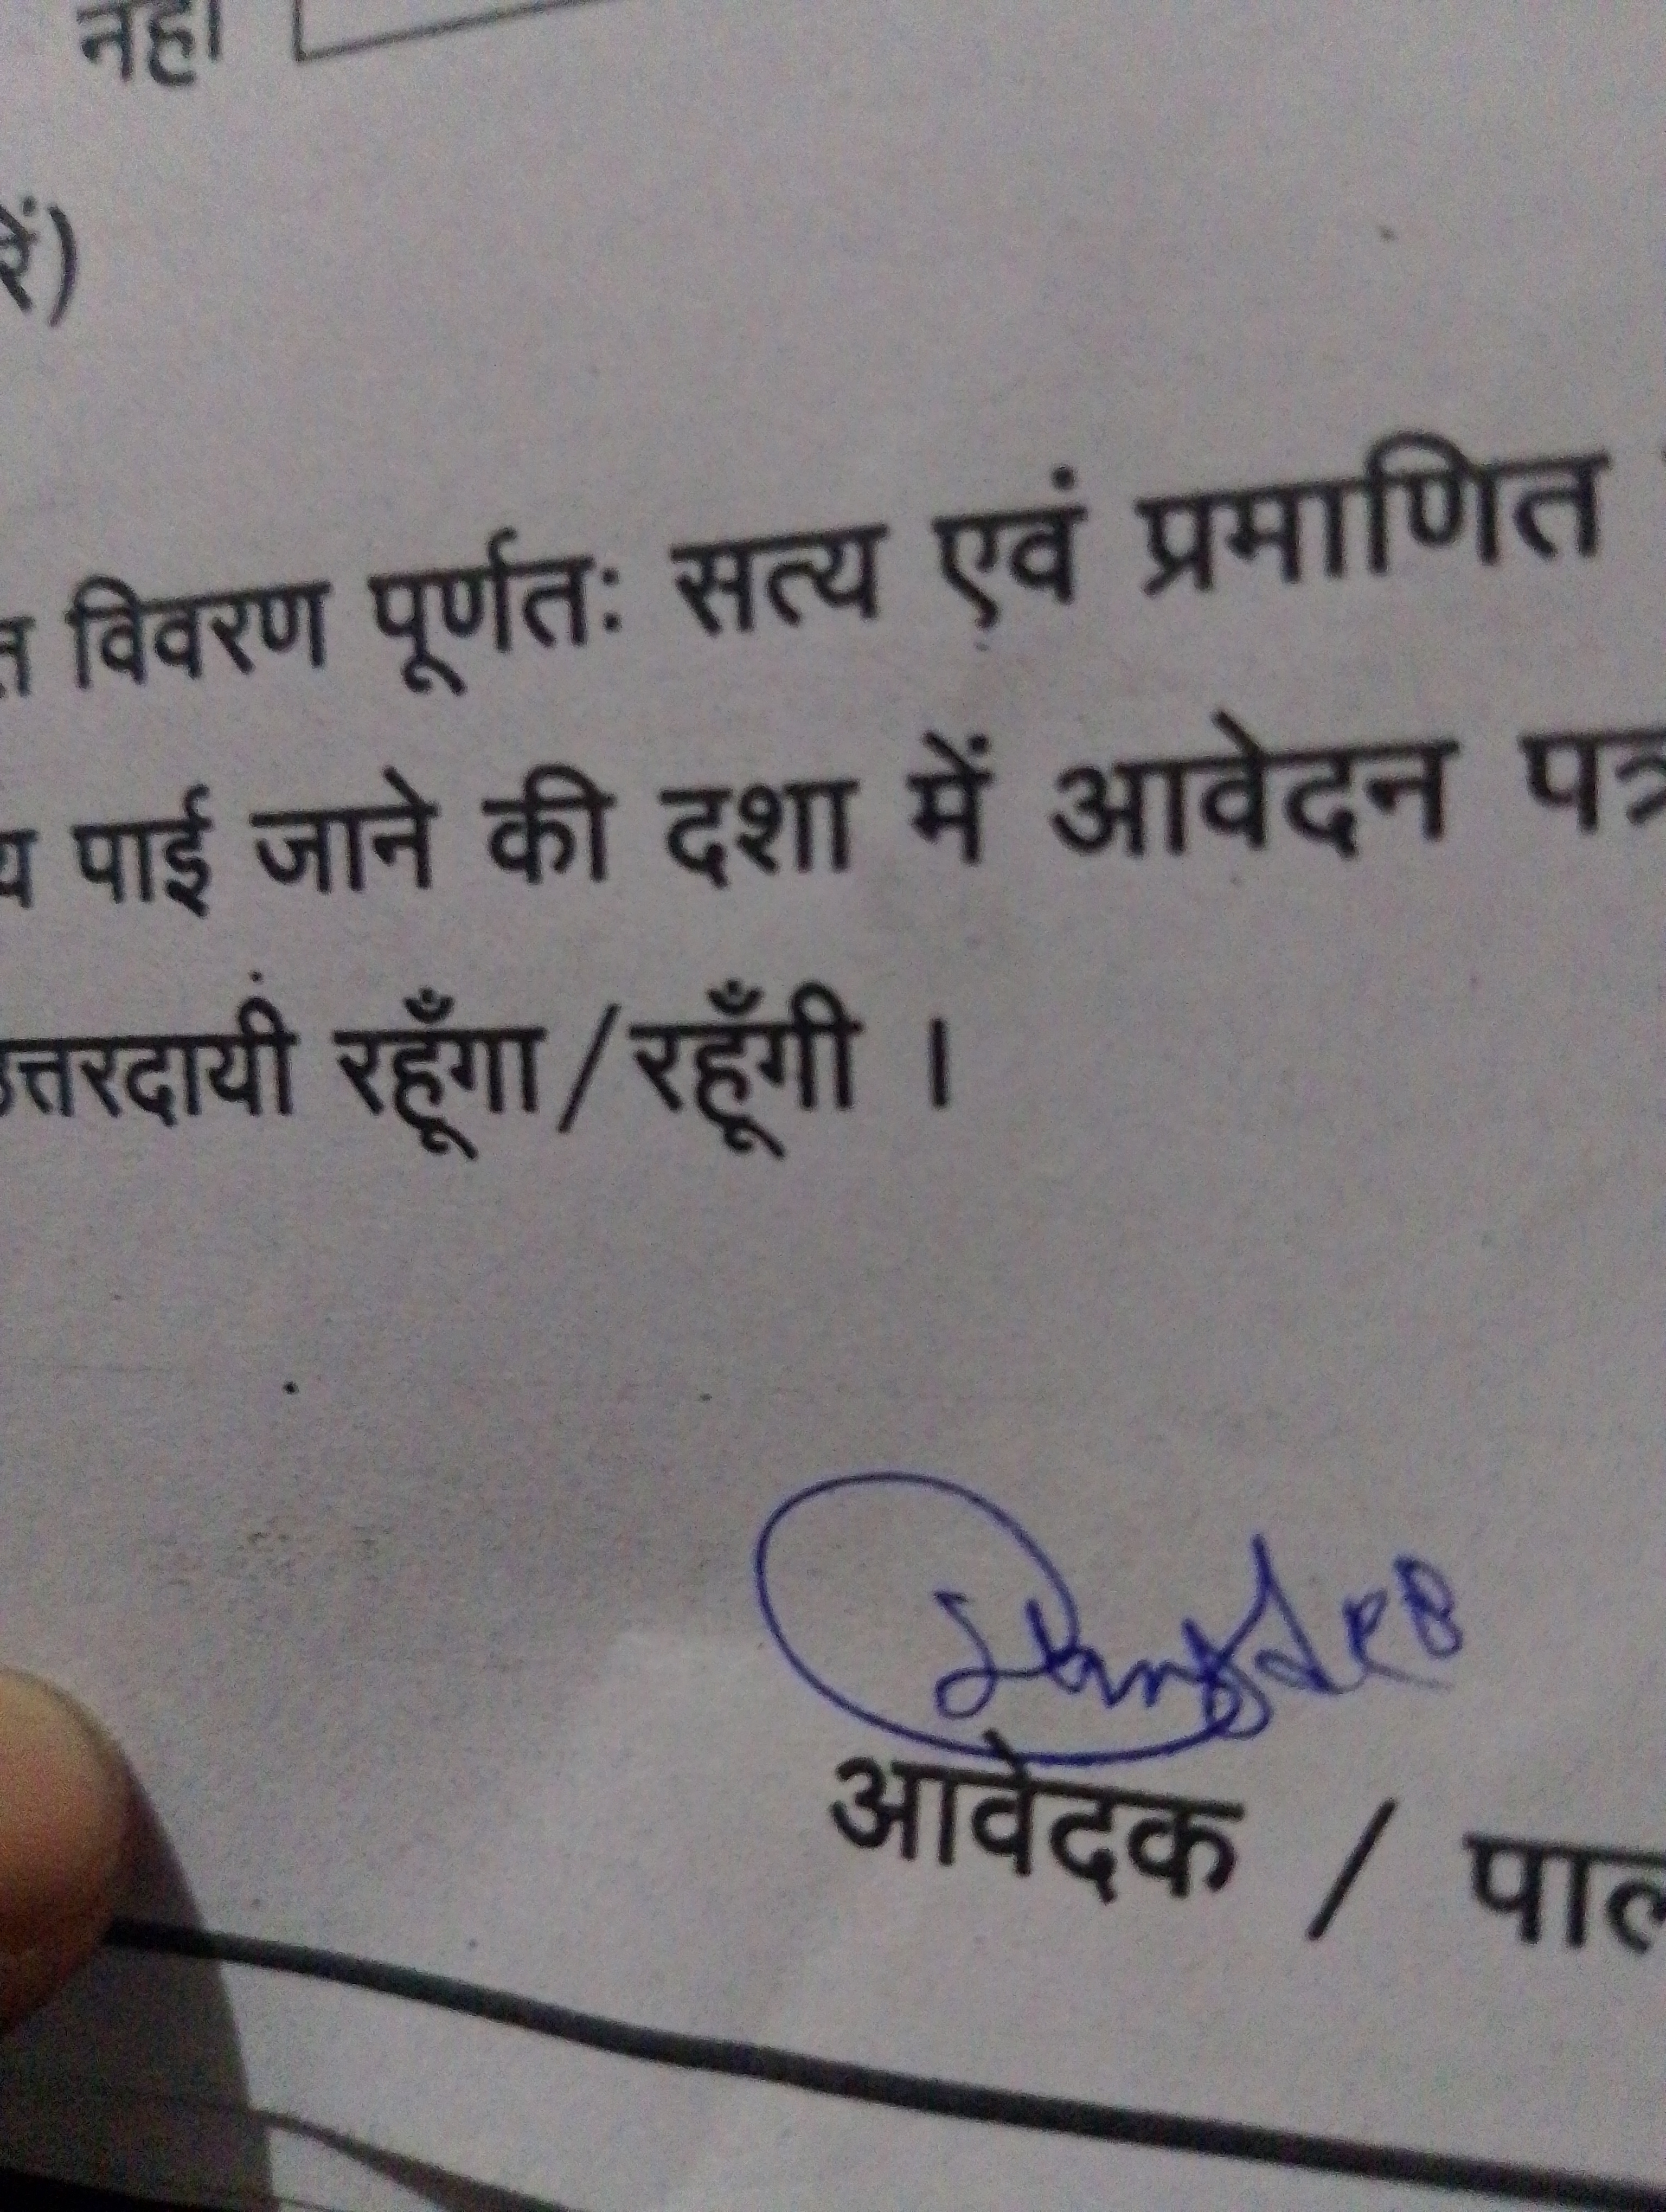 नहीं
रें)
त विवरण पूर्णतः सत्य एवं प्रमाणित
य पाई जाने की दशा में आवेदन पत्र
उत्तरदायी रहूँगा/रहूँगी ।
आवेदक / पाल